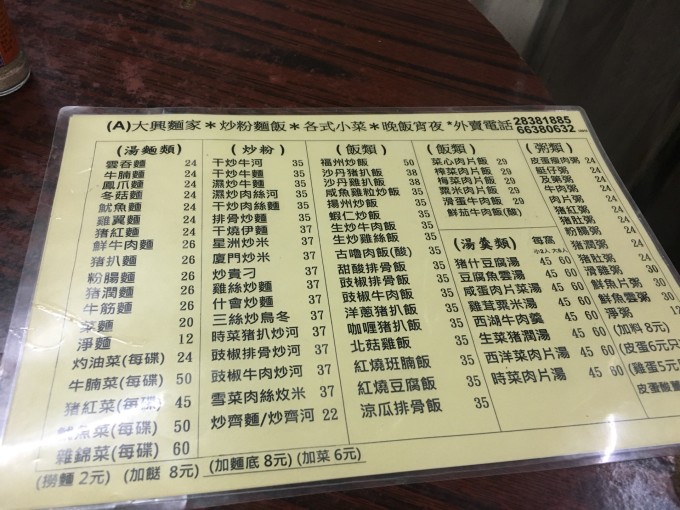 (A)大興麵家＊炒粉麵飯＊各式小菜＊晚飯宵夜＊外賣電話 28381885
66380632
(湯麵類)
雲吞麵 24
牛腩麵 24
鳳爪麵 24
冬菇麵 24
魷魚麵 24
雞翼麵 24
豬紅麵 24
鮮牛肉麵 26
猪扒麵 26
粉腸麵 26
猪潤麵 26
牛筋麵 26
菜麵 20
淨麵 12
灼油菜(每碟) 24
牛腩菜(每碟) 50
猪紅菜(每碟) 45
魷魚菜(每碟) 50
雜錦菜(每碟) 60
(炒粉)
干炒牛河 35
干炒牛麵 35
濕炒牛河 35
濕炒肉絲河 35
干炒肉絲麵 35
排骨炒麵 35
干燒伊麵 37
星洲炒米 37
廈門炒米 37
炒貴刁 37
雞絲炒麵 37
什會炒麵 37
三絲炒烏冬 37
時菜猪扒炒河 37
豉椒排骨炒河 37
豉椒牛肉炒河 37
雪菜肉絲炆米 37
炒齊麵/炒齊河 22
(飯類)
福州炒飯 50
沙丹猪扒飯 38
沙丹雞扒飯 38
咸魚雞粒炒飯 35
揚州炒飯 35
蝦仁炒飯 35
生炒牛肉飯 35
生炒雞絲飯 35
古嚕肉飯(酸) 35
甜酸排骨飯 35
豉椒排骨飯 35
豉椒牛肉飯 35
洋蔥猪扒飯 35
咖喱猪扒飯 35
北菇雞飯 35
紅燒班腩飯 35
紅燒豆腐飯 35
涼瓜排骨飯 35
(飯類)
菜心肉片飯 29
榨菜肉片飯 29
梅菜肉片飯 29
粟米肉片飯 29
滑蛋牛肉飯 29
鮮茄牛肉飯(酸)
(湯羹類) 每窩
小2人 大4人
猪什豆腐湯 45 60
豆腐魚雲湯 45 60
咸蛋肉片菜湯 45 60
雞茸粟米湯 45 60
西湖牛肉羹 45 60
生菜猪潤湯 45 60
西洋菜肉片湯 45 60
時菜肉片湯 45 60
(粥類)
皮蛋瘦肉粥 24
艇仔粥 24
及第粥 24
牛肉粥 24
肉片粥 24
猪紅粥 24
猪肚粥 24
粉腸粥 24
猪潤粥 24
滑雞粥 30
鮮魚片粥 30
鮮魚雲粥 30
淨粥 12
(加料 8元)
(皮蛋 6元只
(雞蛋 5元
皮蛋酸薑
(撈麵 2元) (加餸 8元) (加麵底 8元) (加菜 6元)